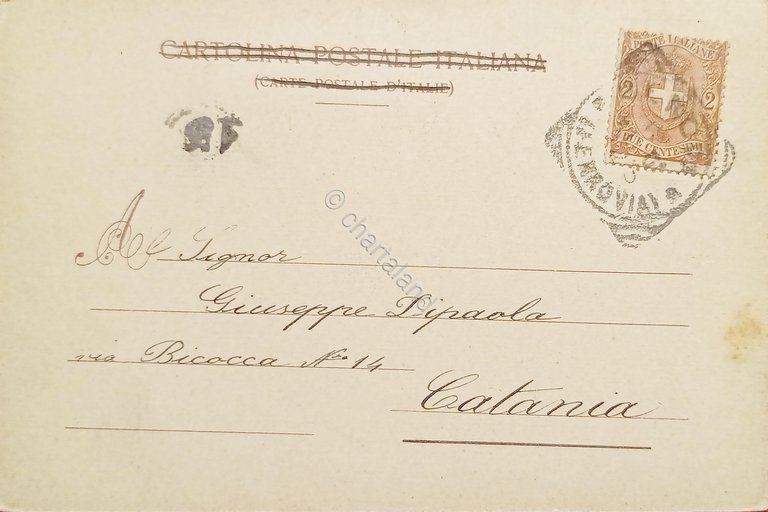 CARTOLINA POSTALE ITALIANA
(CARTE POSTALE D'ITALIE)
POSTE ITALIANE
2 2
DUE CENTESIMI
FERROVIA
© chartaland
Al Signor
Giuseppe Dipaola
via Bicocca No 14
Catania